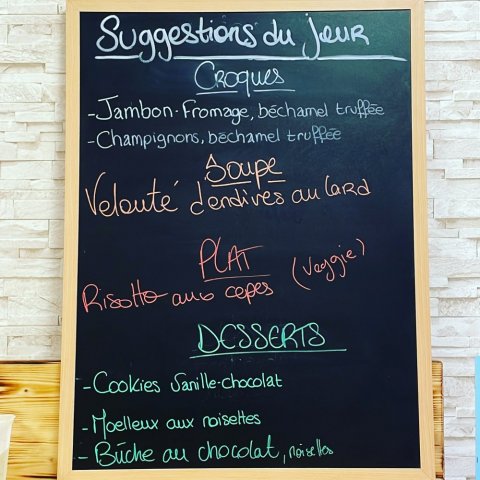 Suggestions du jour
Croques
- Jambon-Fromage, béchamel truffée
- Champignons, béchamel truffée
Soupe
Velouté d'endives au lard
PLAT
Risotto aux cepes (Veggie)
DESSERTS
- Cookies Vanille-chocolat
- Moelleux aux noisettes
- Bûche au chocolat, noisettes